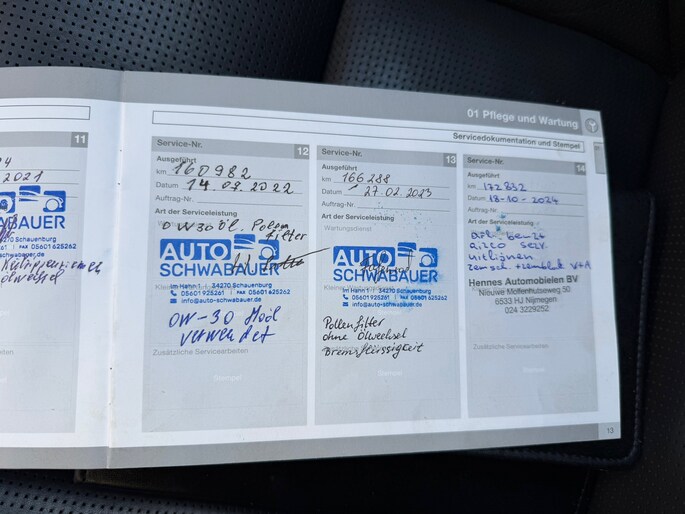 01 Pflege und Wartung
Servicedokumentation und Stempel
11
2021
AUTO
SCHWABAUER
34270 Schauenburg
FAX 05601625262
Ölwechsel
Service-Nr. 12
Ausgeführt
km 160982
Datum 14.09.2022
Auftrag-Nr.
Art der Serviceleistung
0W30 Öl. Pollen
filter
AUTO
SCHWABAUER
Im Hahn 1 | 34270 Schauenburg
05601925261 | FAX 05601625262
info@auto-schwabauer.de
0W-30
verwendet
Zusätzliche Servicearbeiten
Stempel
Service-Nr. 13
Ausgeführt
km 166288
Datum 27.02.2023
Auftrag-Nr.
Art der Serviceleistung
Wartungsdienst
AUTO
SCHWABAUER
Im Hahn 1 | 34270 Schauenburg
05601925261 | FAX 05601625262
info@auto-schwabauer.de
Pollenfilter
ohne Ölwechsel
Bremsflüssigkeit
Service-Nr. 14
Ausgeführt
km 172832
Datum 18-10-2024
Auftrag-Nr.
Art der Serviceleistung
airco serv.
uitlijnen
V+A
Hennes Automobielen BV
Nieuwe Mollenhutseweg 50
6533 HJ Nijmegen
024 3229252
Zusätzliche Servicearbeiten
13